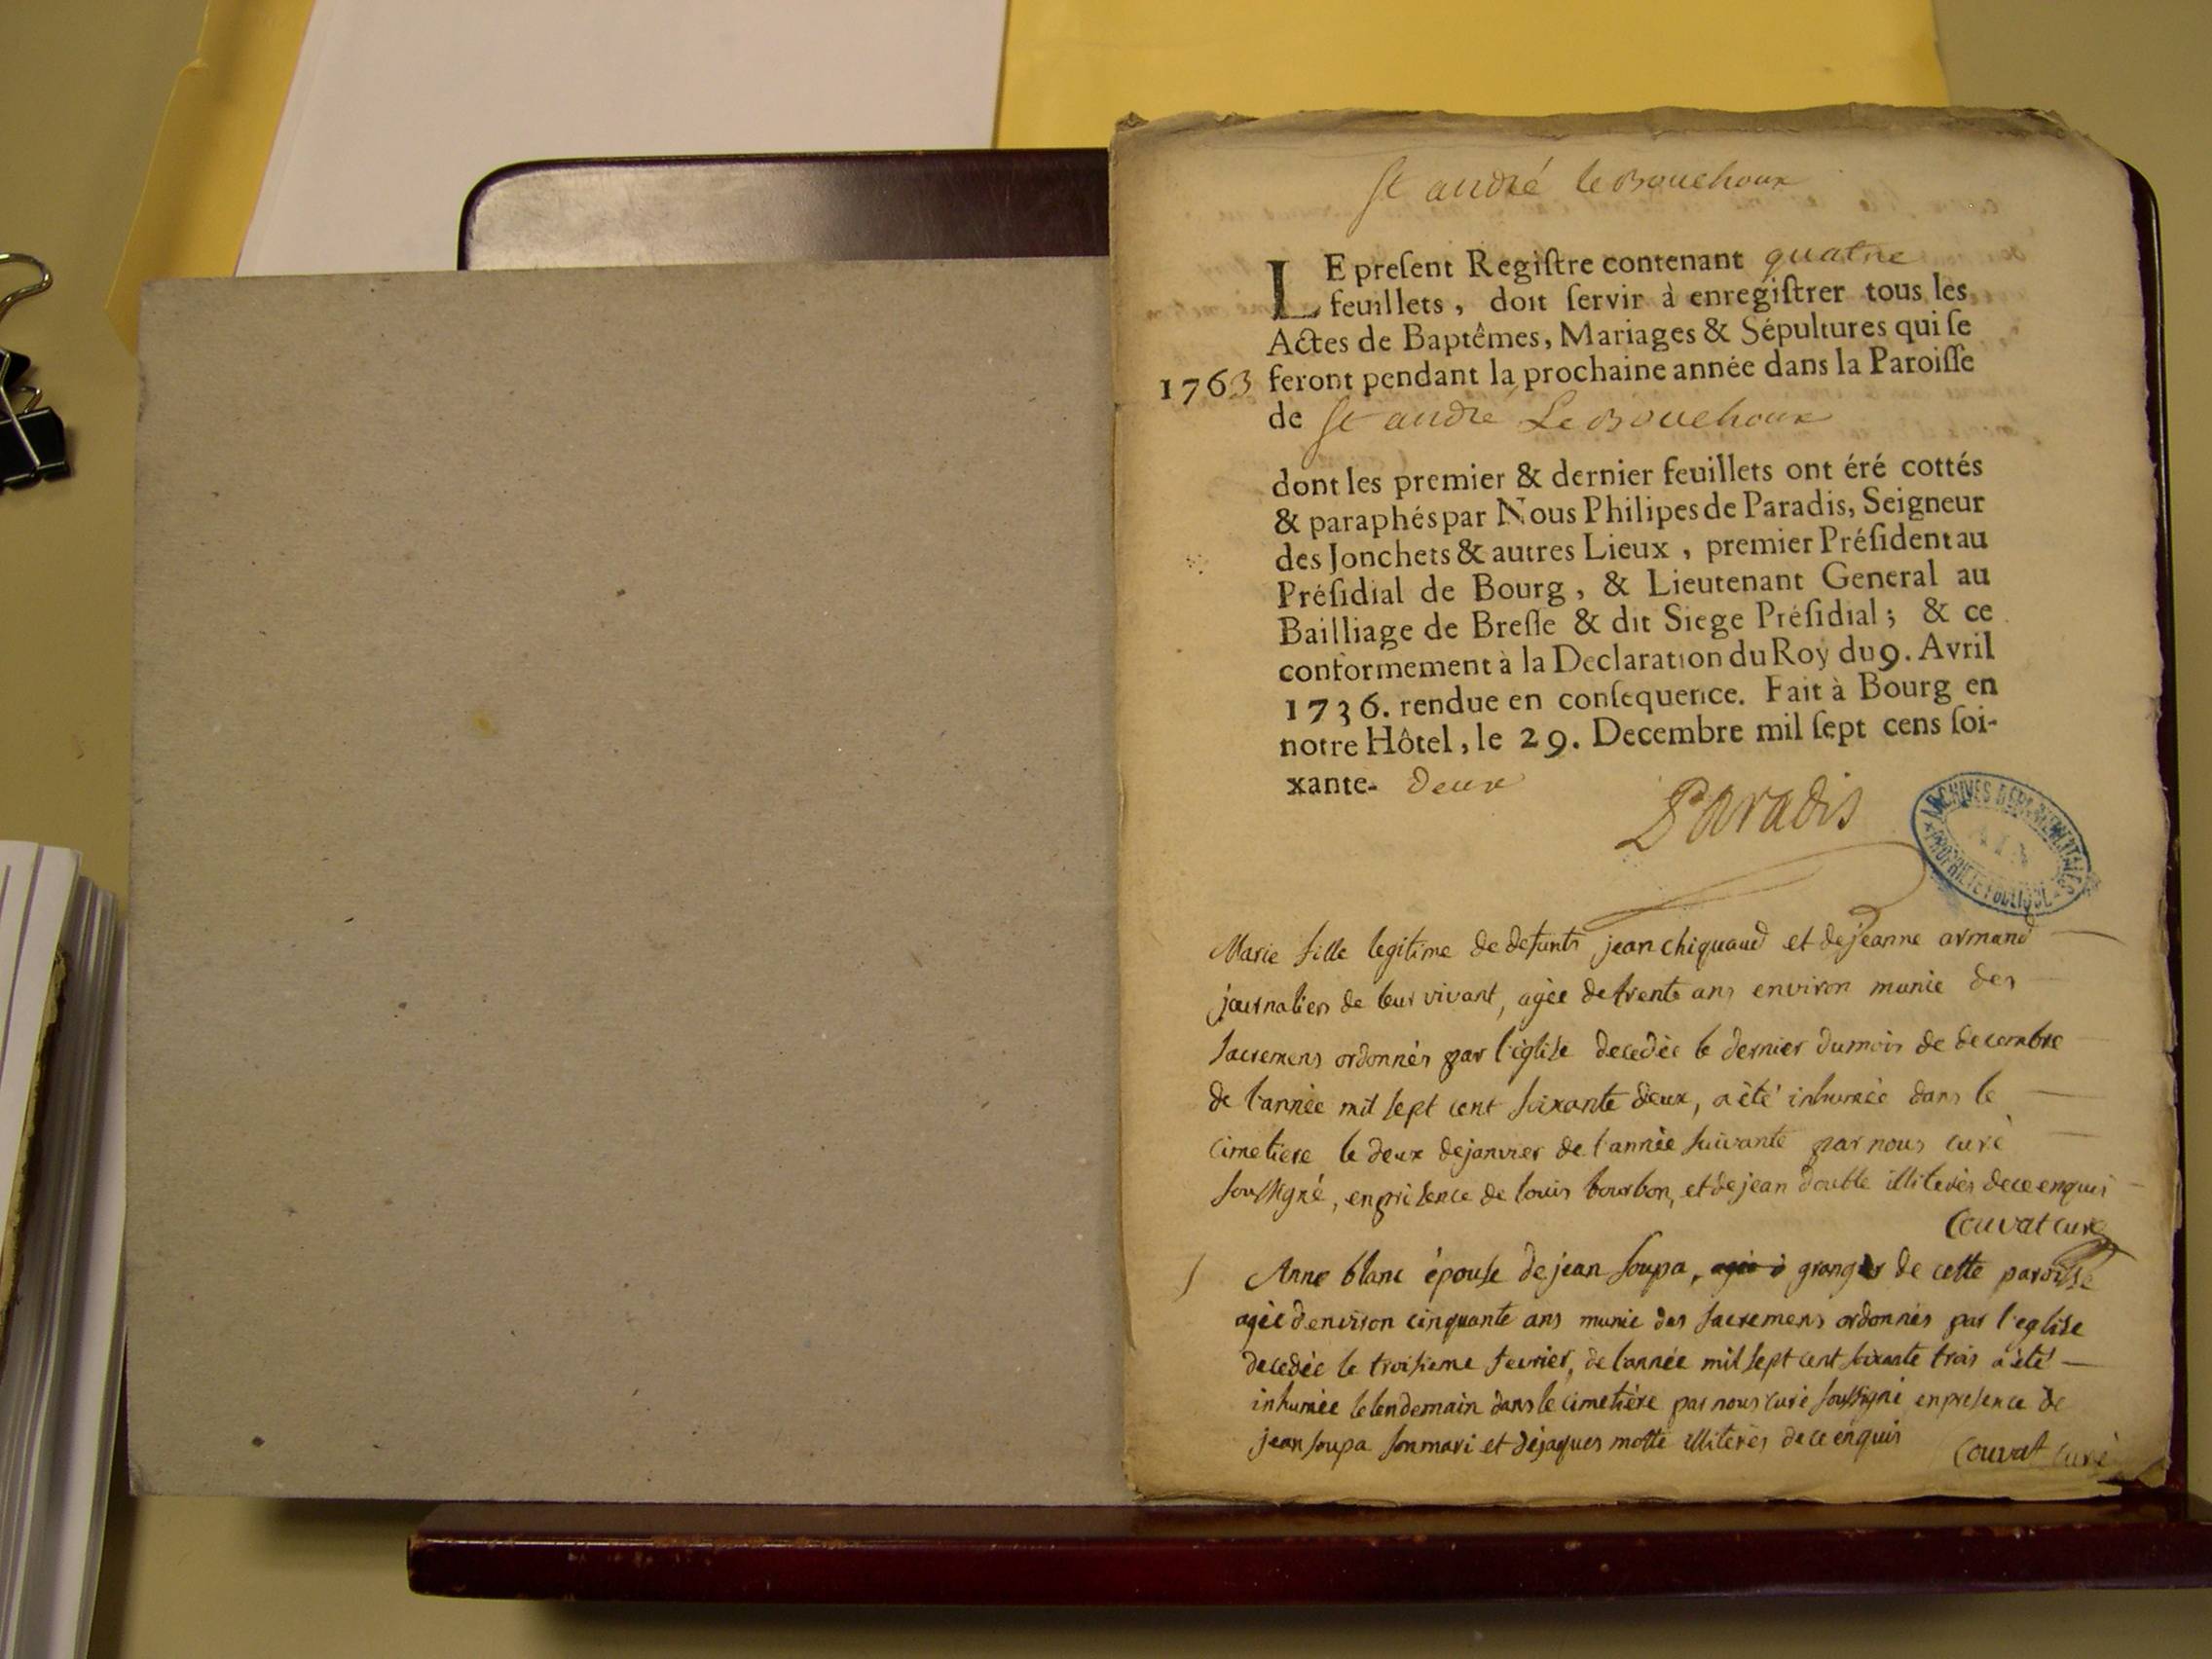 St andré le Bouchoux
LE preſent Regiſtre contenant quatre
feuillets, doit ſervir à enregiſtrer tous les
Actes de Baptêmes, Mariages & Sépultures qui ſe
1763 feront pendant la prochaine année dans la Paroiſſe
de St andré Le Bouchoux
dont les premier & dernier feuillets ont éré cottés
& paraphés par Nous Philipes de Paradis, Seigneur
des Jonchets & autres Lieux, premier Préſident au
Préſidial de Bourg, & Lieutenant General au
Bailliage de Breſſe & dit Siege Préſidial; & ce
conformement à la Declaration du Roy du 9. Avril
1736. rendue en conſequence. Fait à Bourg en
notre Hôtel, le 29. Decembre mil ſept cens ſoi-
xante- deux
Paradis
ARCHIVES DEPARTEMENTALES
AIN
PROPRIETE PUBLIQUE
Marie fille legitime de defunts jean chiquaud et de jeanne armand
journaliers de leur vivant, agée de trente ans environ munie des
sacremens ordonnés par l'église decedée le dernier du mois de decembre
de l'année mil sept cent soixante deux, a été inhumée dans le
cimetiere le deux de janvier de l'année suivante par nous curé
soussigné, en présence de louis bourbon, et de jean double illiterés de ce enquis
Couvat curé
Anne blanc épouse de jean soupa, granger de cette paroisse
agée d'environ cinquante ans munie des sacremens ordonnés par l'eglise
decedée le troisieme fevrier, de l'année mil sept cent soixante trois a été
inhumée le lendemain dans le cimetière par nous curé soussigné en presence de
jean soupa son mari et de jaques motte illiterés de ce enquis
Couvat curé